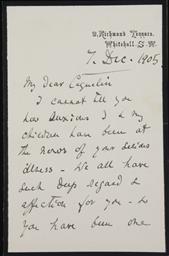 2, Richmond Terrace,
Whitehall, S.W.
7. Dec. 1905
My dear
I cannot tell you
how anxious I & my
children have been at
the news of your serious
illness – We all have
such deep regard &
affection for you – &
you have been one